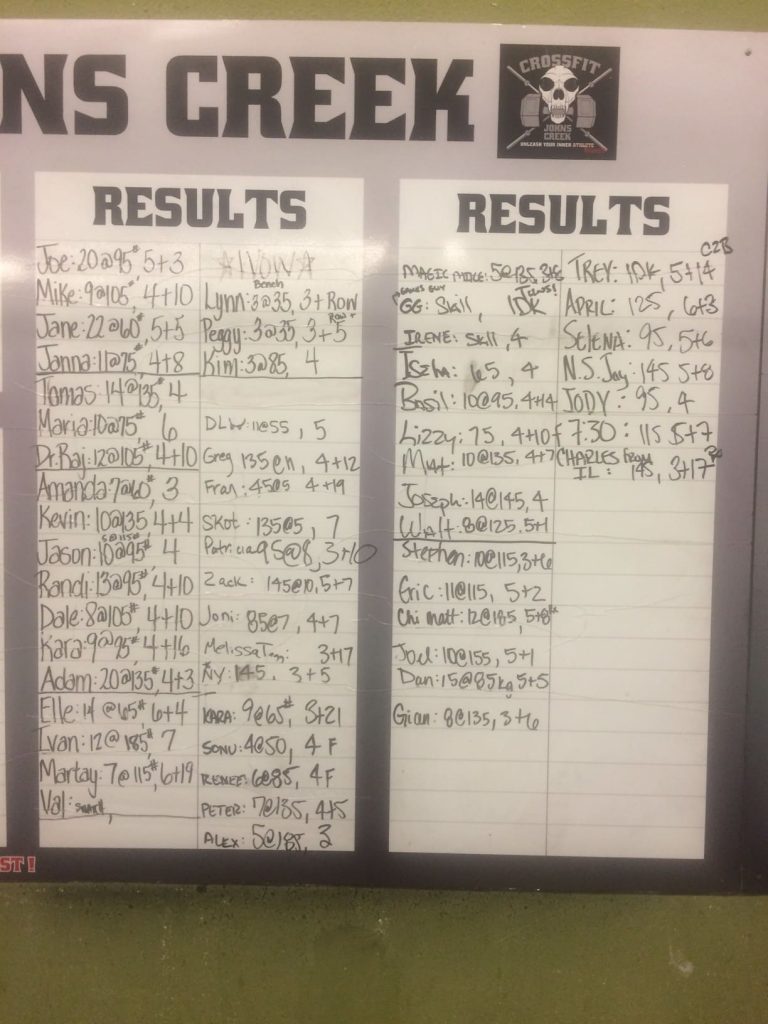 NS CREEK
CROSSFIT
JOHNS
CREEK
UNLEASH YOUR INNER ATHLETE
RESULTS
Joe: 20@95# 5+3
Mike: 9@105#, 4+10
Jane: 22@60#, 5+5
Janna: 11@75#, 4+8
Tomas: 14@135#, 4
Maria: 10@75#, 6
Dr. Raj: 12@105#, 4+10
Amanda: 7@60#, 3
Kevin: 10@135, 4+4
5@115#
Jason: 10@95#, 4
Randi: 13@95#, 4+10
Dale: 8@105#, 4+10
Kara: 9@95#, 4+16
Adam: 20@135#, 4+3
Elle: 14 @65#, 6+4
Ivan: 12@ 185#, 7
Martay: 7@115#, 6+19
Val:
☆WOW☆
Bench
Lynn: 3@35, 3+Row
Row+
Peggy: 3@35, 3+5
Kim: 3@85, 4
DLW: 11@55, 5
Greg 135@11, 4+12
Fran: 45@5 4+19
SKot: 135@5, 7
Patricia 95@8, 3+10
Zack: 145@10, 5+7
Joni: 85@7, 4+7
Melissa 3+17
NY: 145, 3+5
KARA: 9@65#, 3+21
SONU: 4@50, 4 F
RENEE: 6@85, 4F
PETER: 7@135, 4+15
ALEX: 5@185, 3
RESULTS
MAGIC MIKE: 5@135, 3+6
GAMES GUY
GG: Skill, IDK
IRENE: SKILL, 4
65, 4
Basil: 10@95, 4+14
Lizzy: 75, 4+10
Matt: 10@135, 4+7
Joseph: 14@145, 4
Walt: 8@125, 5+1
Stephen: 10@115, 3+6
Eric: 11@115, 5+2
Chi Matt: 12@185, 5+8
Joel: 10@155, 5+1
Dan: 15@85kg 5+5
Gian: 8@135, 3+6
C2B
TREY: IDK, 5+14
APRIL: 125, 6+3
SELENA: 95, 5+6
N.S. Jay: 145 5+8
JODY: 95, 4
7:30: 115 5+7
CHARLES FROM
IL: 145, 3+17
ST!